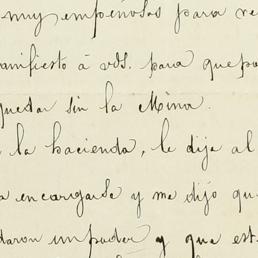 muy empeñosos para re
anifiesto á vds. para que pa
quedar sin la Mina.
la hacienda, le dije al
a encargarse y me dijo qu
daron un poder y que est